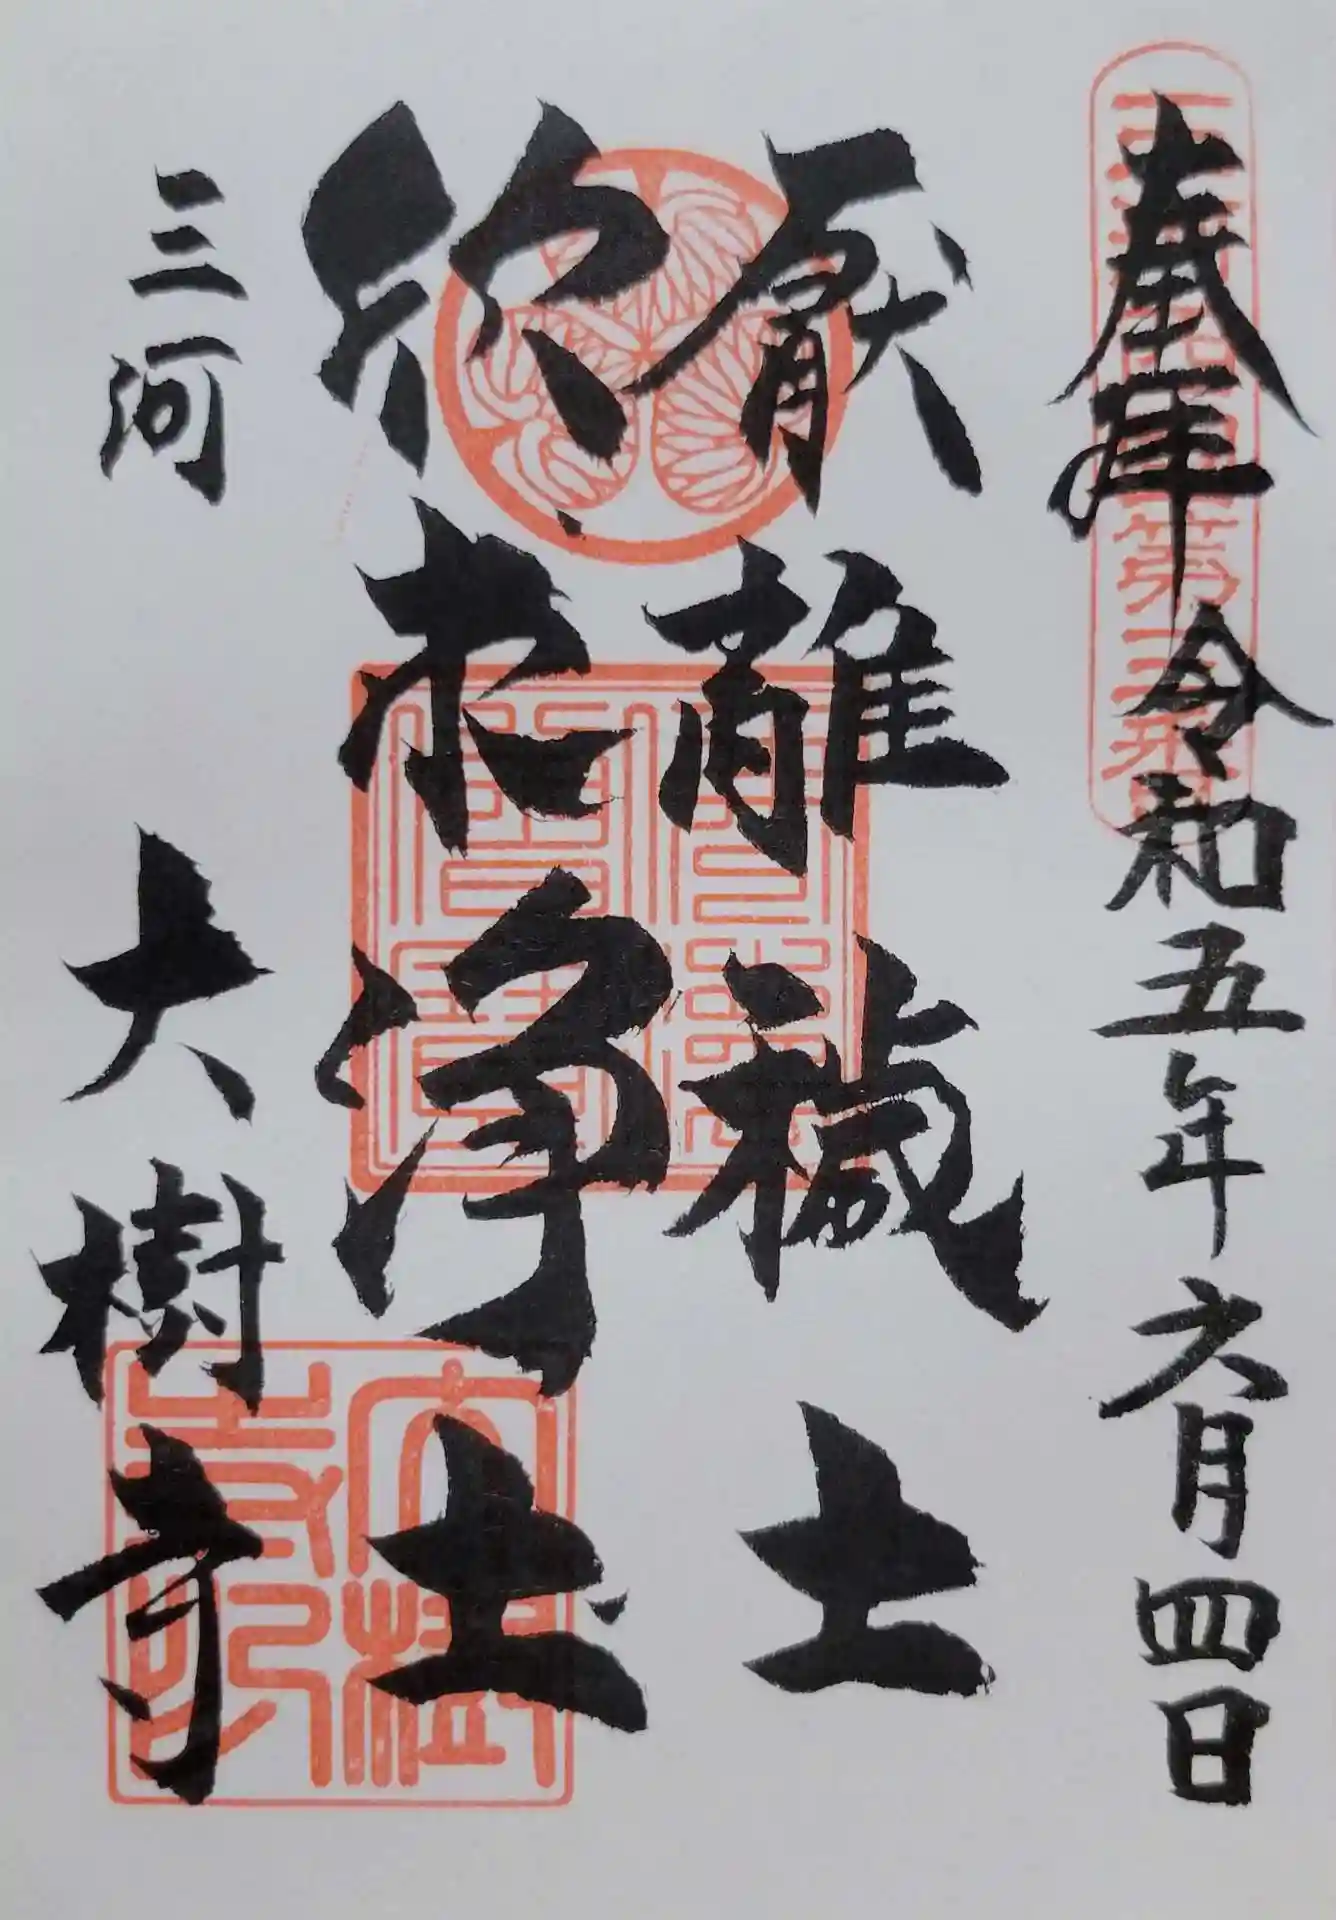 奉拝
令和五年六月四日
厭離穢土
欣求浄土
三河
大樹寺